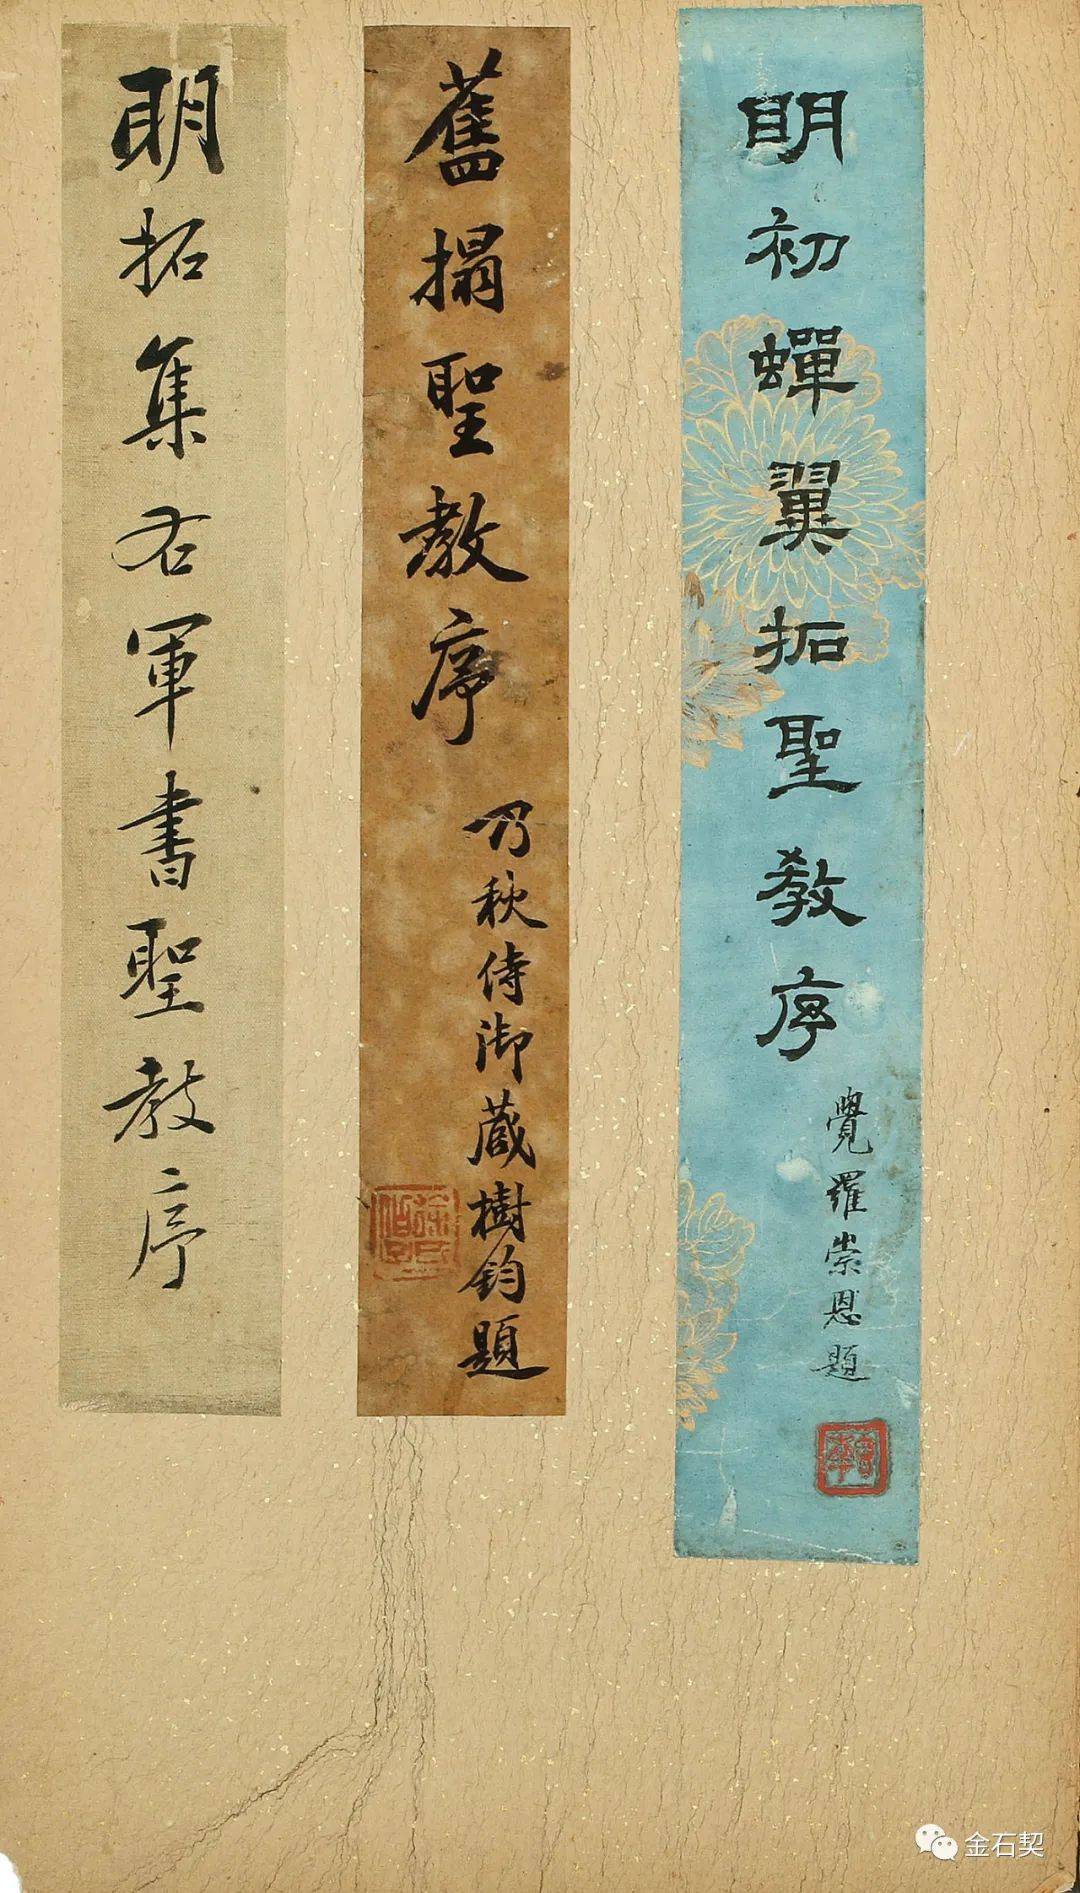 明初蟬翼拓聖教序
覺羅崇恩題
舊搨聖教序
乃秋侍御藏樹鈞題
明拓集右軍書聖教序
金石契